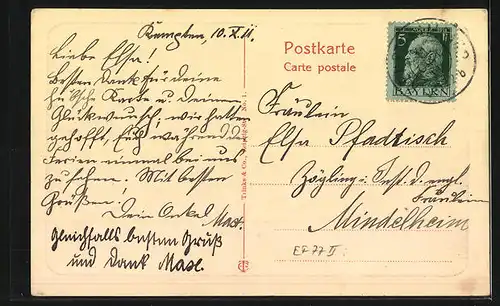 Kempten, 10. X. 11.
Liebe Elsa!
Besten Dank für deine
hübsche Karte u. deinen
Glückwunsch, wir hatten
gehofft, Euch während der
Ferien einmal bei uns
zu sehen. Mit besten
Grüßen!
Dein Onkel
Gleichfalls besten Gruß
und Dank
Postkarte
Carte postale
5
BAYERN
Fräulein
Elsa Pfadtisch
Zögling i. Inst. d. engl.
Fräulein
Mindelheim